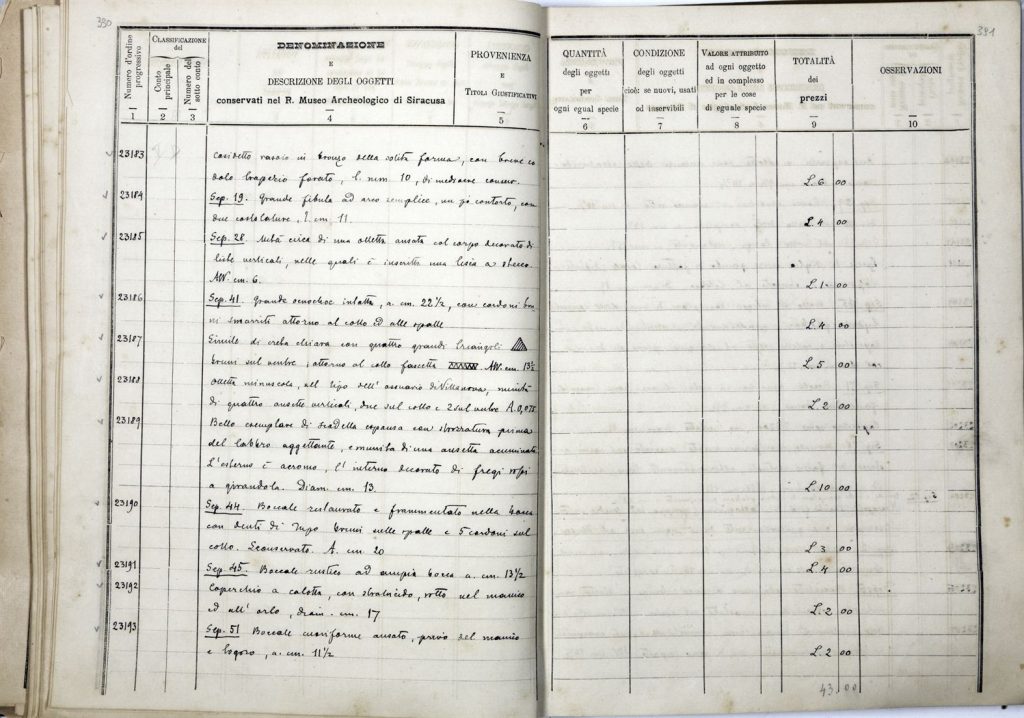 390
391
Numero d'ordine progressivo
CLASSIFICAZIONE
del
Conto principale
Numero del sotto conto
DENOMINAZIONE
E
DESCRIZIONE DEGLI OGGETTI
conservati nel R. Museo Archeologico di Siracusa
PROVENIENZA
E
TITOLI GIUSTIFICATIVI
QUANTITÀ
degli oggetti
per
ogni egual specie
CONDIZIONE
degli oggetti
cioè: se nuovi, usati
od inservibili
VALORE ATTRIBUITO
ad ogni oggetto
ed in complesso
per le cose
di eguale specie
TOTALITÀ
dei
prezzi
OSSERVAZIONI
1 2 3 4 5 6 7 8 9 10
23183 Cosidetto rasoio in bronzo della solita forma, con breve co
dolo trapezio forato, l. mm. 10, di mediocre conserv. L. 6 00
23184 Sep. 19. Grande fibula ad arco semplice, un pò contorto, con
due costolature, l. cm. 11. L. 4 00
23185 Sep. 28. Metà circa di una olletta ansata col corpo decorato di
verticali, nelle quali è inscritta una lisca a stecco.
cm. 6. L. 1- 00
23186 Sep. 41. Grande oenochoe intatta, a. cm. 22 1/2, con cordoni bru
ni smarriti attorno al collo ed alle spalle L. 4 00
23187 Simile di creta chiara con quattro grandi triangoli
bruni sul ventre, attorno al collo fascetta cm. 13 1/2 L. 5 00
23188 Olletta minuscola, nel tipo dell' ossuario di Villanova, munita
di quattro ansette verticali, due sul collo e 2 sul ventre A. 0,075 L. 2 00
23189 Bello esemplare di scodella espansa con strozzatura prima
del labbro aggettante, e munita di una ansetta acuminata
L' esterno è acromo, l' interno decorato di fregi rossi
a girandola. Diam. cm. 13. L. 10 00
23190 Sep. 44. Boccale restaurato e frammentato nella bocca
con denti di lupo bruni nelle spalle e 5 cordoni sul
collo. Sconservato. A. cm. 20 L. 3 00
23191 Sep. 45. Boccale rustico ad ampia bocca a. cm. 13 1/2 L. 4 00
23192 Coperchio a calotta, con stralucido, rotto nel manico
ed all' orlo, diam. cm. 17 L. 2 00
23193 Sep. 51 Boccale cuoriforme ansato, privo del manico
e logoro, a. cm. 11 1/2 L. 2 00
43.00